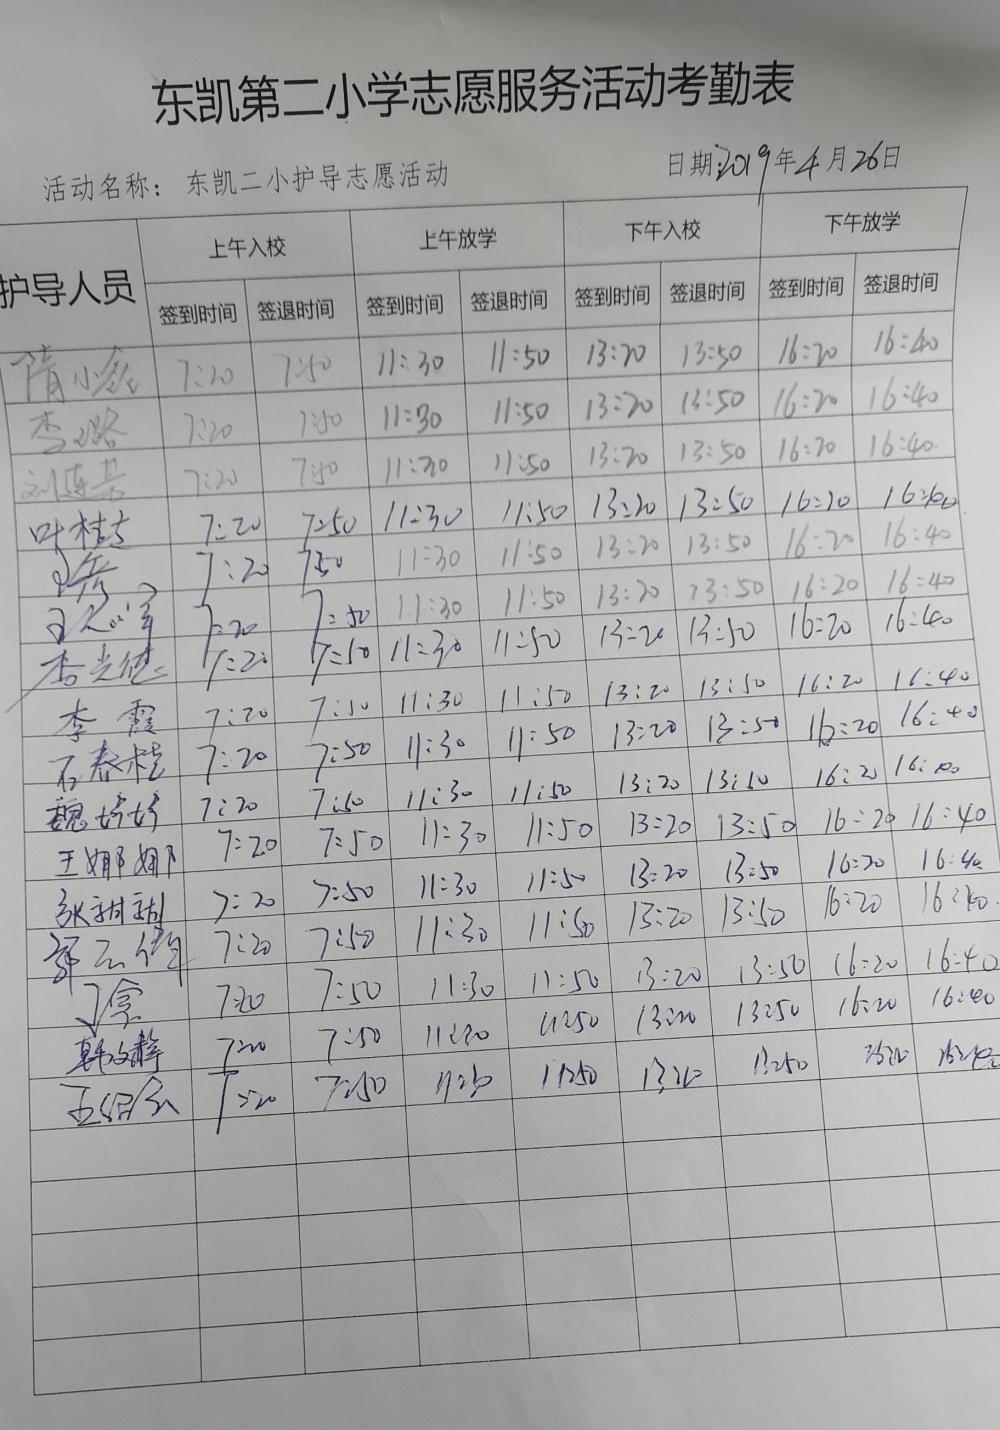 东凯第二小学志愿服务活动考勤表
活动名称：东凯二小护导志愿活动 日期：2019年4月26日
护导人员 上午入校 上午放学 下午入校 下午放学
签到时间 签退时间 签到时间 签退时间 签到时间 签退时间 签到时间 签退时间
隋小 7:20 7:50 11:30 11:50 13:20 13:50 16:20 16:40
李 7:20 7:50 11:30 11:50 13:20 13:50 16:20 16:40
刘 7:20 7:50 11:30 11:50 13:20 13:50 16:20 16:40
叶桂 7:20 7:50 11:30 11:50 13:20 13:50 16:20 16:40
7:20 750 11:30 11:50 13:20 13:50 16:20 16:40
7:20 7:50 11:30 11:50 13:20 13:50 16:20 16:40
李光 7:20 7:50 11:30 11:50 13:20 13:50 16:20 16:40
李霞 7:20 7:50 11:30 11:50 13:20 13:50 16:20 16:40
石春桂 7:20 7:50 11:30 11:50 13:20 13:50 16:20 16:40
魏婷婷 7:20 7:50 11:30 11:50 13:20 13:50 16:20 16:40
王娜娜 7:20 7:50 11:30 11:50 13:20 13:50 16:20 16:40
张甜甜 7:20 7:50 11:30 11:50 13:20 13:50 16:20 16:40
7:20 7:50 11:30 11:50 13:20 13:50 16:20 16:40
7:20 7:50 11:30 11:50 13:20 13:50 16:20 16:40
韩文静 7:20 7:50 11:30 11:50 13:20 13:50 16:20 16:40
7:20 7:50 11:30 11:50 13:20 13:50